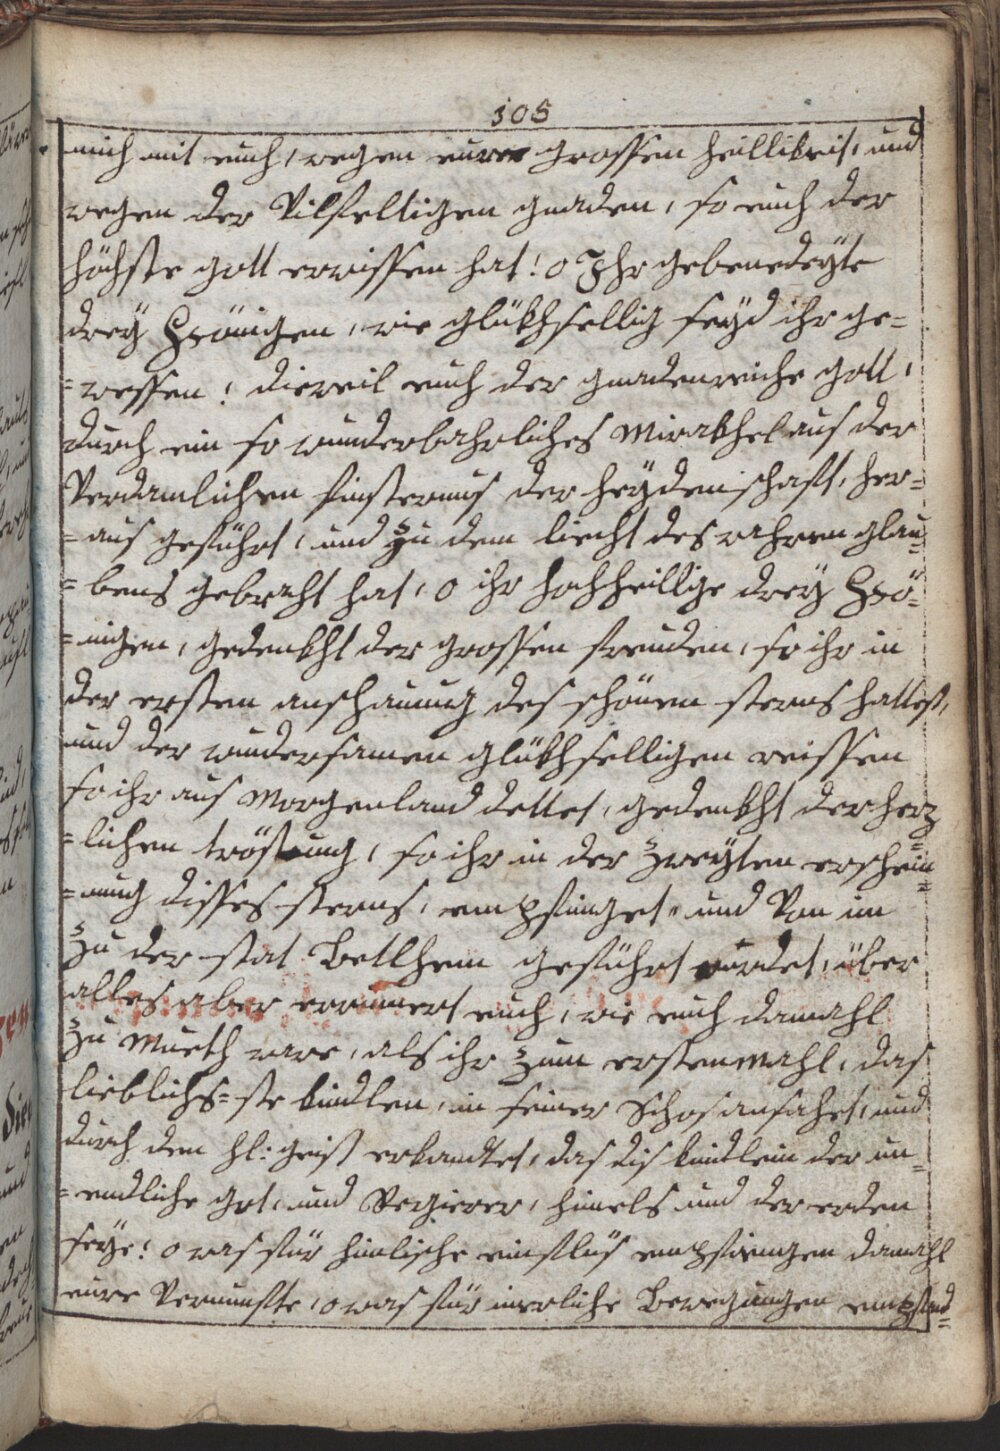 105
mich mit euch, wegen eurer grossen heillikeit, und
wegen der Vilfeltigen gnaden, so euch der
höchste gott erwissen hat! o Ihr gebenedeÿte
dreÿ Königen, wie glükhsellig seÿd ihr ge=
=wessen! dieweil euch der gnadenreiche gott,
durch ein so wunderbahrliches Mirakhel aus der
Verdamlichen finsternus der heÿdenschaft, her=
=aus geführt, und zu dem liecht des wahren glau=
=bens gebracht hat, o ihr hochheillige dreÿ Kö=
=nigen, gedenkht der grossen freuden, so ihr in
der ersten anschauung des schönen sterns hattest,
und der wundersamen glükhselligen reissen
so ihr aus Morgenland dettet, gedenkht der herz
=lichen tröstung, so ihr in der zweÿten erschein=
=nung disses sterns, empfinget, und Von im
zu der stat Betlhem geführt wurdet, über
alles aber erinnert euch, wie euch damahl
zu Mueth ware, als ihr zum erstenmahl, das
lieblichs=ste kindlen, in seiner Schos ansahet, und
durch den hl: geist erkandtet, das dis kindlein der un=
=endliche got, und Regierer, himels und der erden
seÿe! o was für himlische einflüs empfiengen damahl
eure Vernunfte, o was für inerliche Bewegungen empfand=